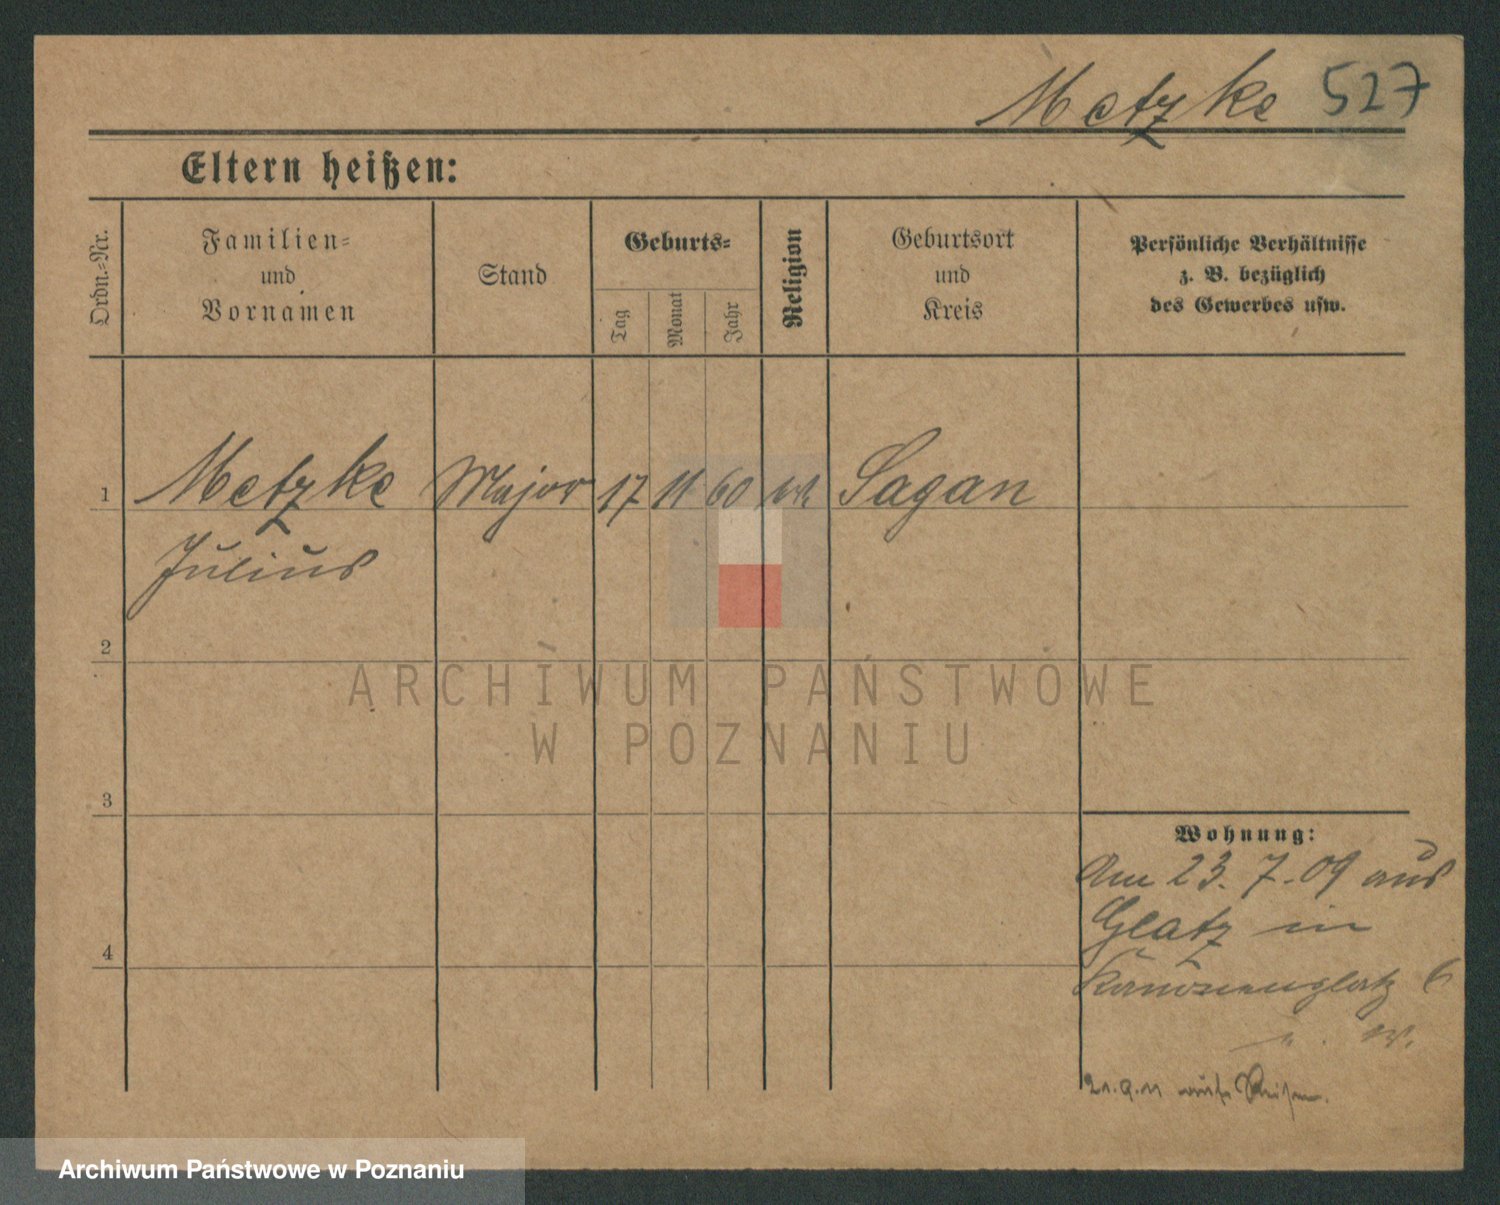 Metzke 527
Eltern heißen:
Ordn.-Nr.
Familien-
und
Vornamen
Stand
Geburts-
Tag
Monat
Jahr
Religion
Geburtsort
und
Kreis
Persönliche Verhältnisse
z. B. bezüglich
des Gewerbes usw.
1 Metzke Major 17 11 60 Sagan
Julius
2
3
4
Wohnung:
Am 23.7.09 aus
Glatz in
Kanonenplatz 6
21.9.11 auf Reisen.
ARCHIWUM PAŃSTWOWE
W POZNANIU
Archiwum Państwowe w Poznaniu